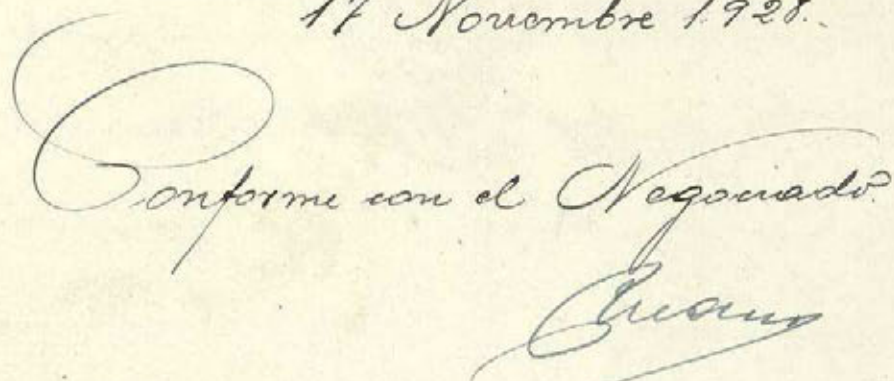 17 Noviembre 1928.
Conforme con el Negociado.